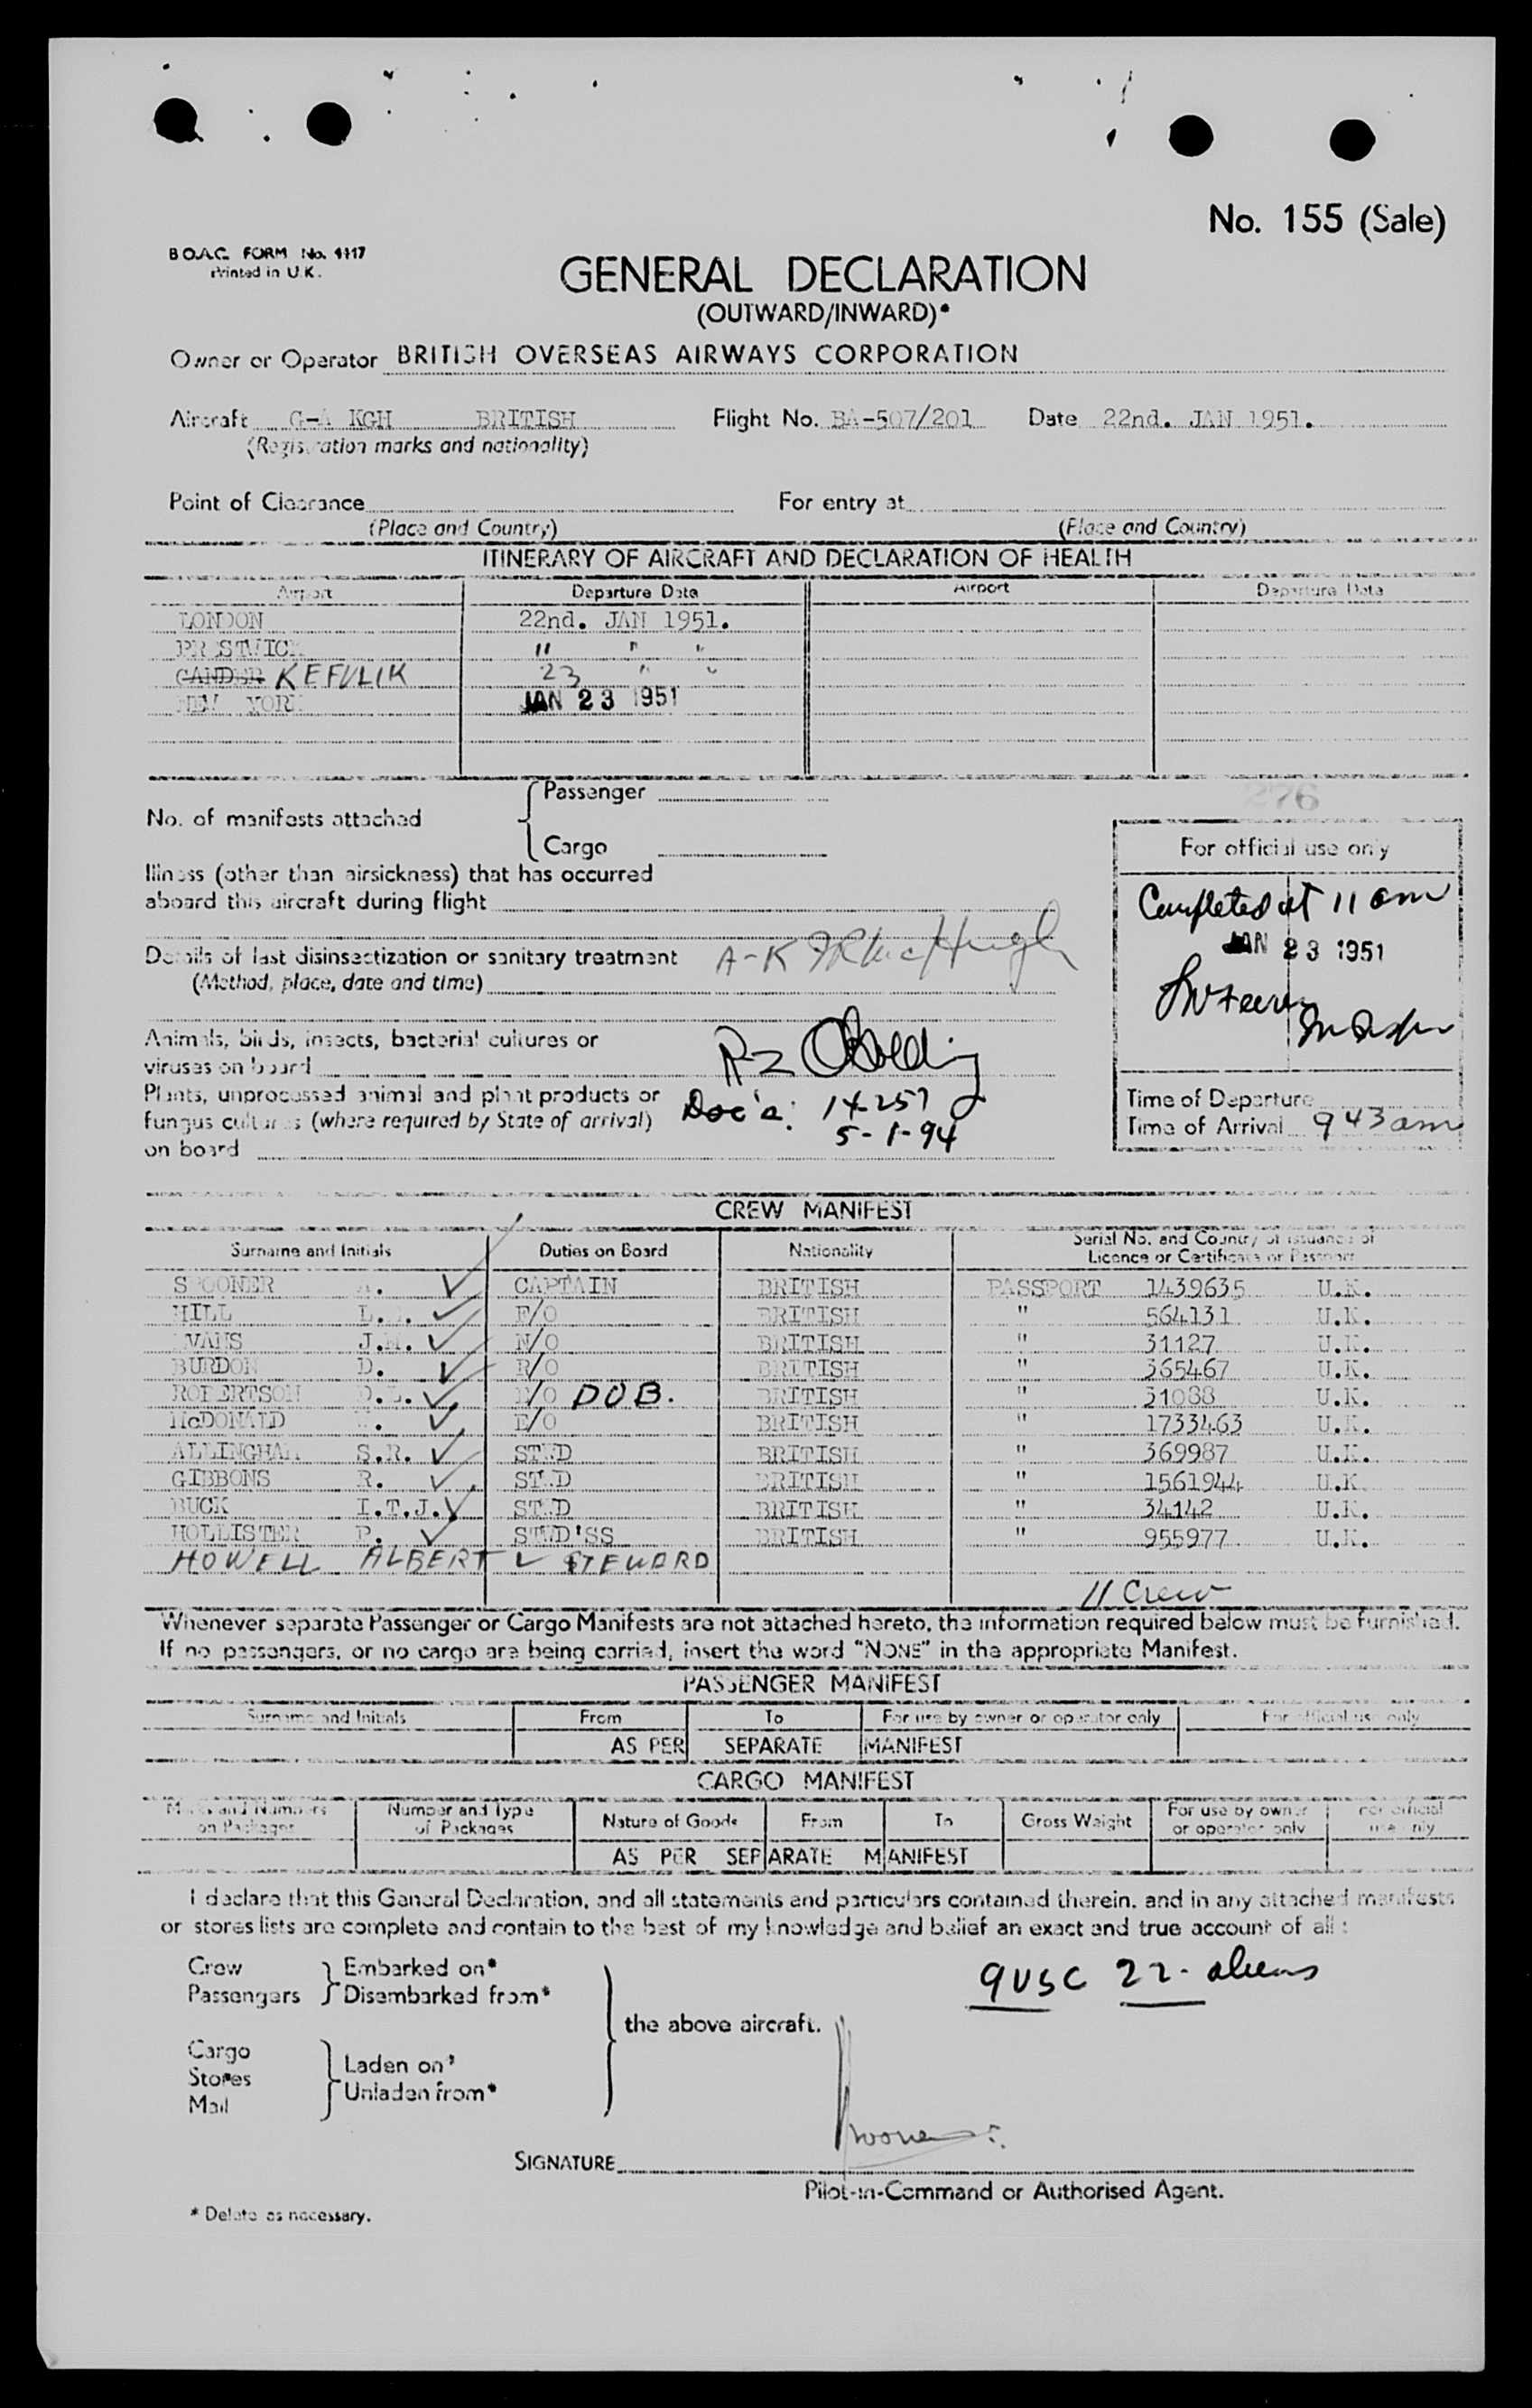 No. 155 (Sale)
B.O.A.C. FORM No. 1117
Printed in U.K.
GENERAL DECLARATION
(OUTWARD/INWARD)*
Owner or Operator BRITISH OVERSEAS AIRWAYS CORPORATION
Aircraft G-A KGH BRITISH Flight No. BA-507/201 Date 22nd. JAN 1951.
(Registration marks and nationality)
Point of Clearance For entry at
(Place and Country) (Place and Country)
ITINERARY OF AIRCRAFT AND DECLARATION OF HEALTH
Airport Departure Date Airport Departure Date
LONDON 22nd. JAN 1951.
PRESTWICK " " "
GANDER KEFVLIK 23 " "
NEW YORK JAN 23 1951
Passenger
No. of manifests attached
Cargo
276
For official use only
Illness (other than airsickness) that has occurred
aboard this aircraft during flight
Completed at 11 am
JAN 23 1951
Details of last disinsectization or sanitary treatment A-K
(Method, place, date and time)
Animals, birds, insects, bacterial cultures or
viruses on board
Plants, unprocessed animal and plant products or
fungus cultures (where required by State of arrival)
on board
14257
5-1-94
Time of Departure
Time of Arrival 943 am
CREW MANIFEST
Surname and Initials Duties on Board Nationality Serial No. and Country of issuance of
Licence or Certificate or Passport
SPOONER CAPTAIN BRITISH PASSPORT 1439635 U.K.
HILL L. F/O BRITISH " 564131 U.K.
EVANS J.M. N/O BRITISH " 31127 U.K.
BURDON D. R/O BRITISH " 365467 U.K.
ROBERTSON /O DOB. BRITISH " 31088 U.K.
McDONALD E/O BRITISH " 1733463 U.K.
ALLINGHAM S.R. STWD BRITISH " 369987 U.K.
GIBBONS R. STWD BRITISH " 1561944 U.K.
BUCK I.T.J. STWD BRITISH " 34142 U.K.
HOLLISTER P. STWD'SS BRITISH " 955977 U.K.
HOWELL ALBERT STEWARD
11 Crew
Whenever separate Passenger or Cargo Manifests are not attached hereto, the information required below must be furnished.
If no passengers, or no cargo are being carried, insert the word "NONE" in the appropriate Manifest.
PASSENGER MANIFEST
Surname and Initials From To For use by owner or operator only For official use only
AS PER SEPARATE MANIFEST
CARGO MANIFEST
Marks and Numbers on Packages Number and Type of Packages Nature of Goods From To Gross Weight For use by owner or operator only For official use only
AS PER SEPARATE MANIFEST
I declare that this General Declaration, and all statements and particulars contained therein, and in any attached manifests
or stores lists are complete and contain to the best of my knowledge and belief an exact and true account of all:
Crew Embarked on*
Passengers Disembarked from*
9 USC 22- aliens
the above aircraft.
Cargo
Stores Laden on*
Mail Unladen from*
SIGNATURE
Pilot-in-Command or Authorised Agent.
* Delete as necessary.